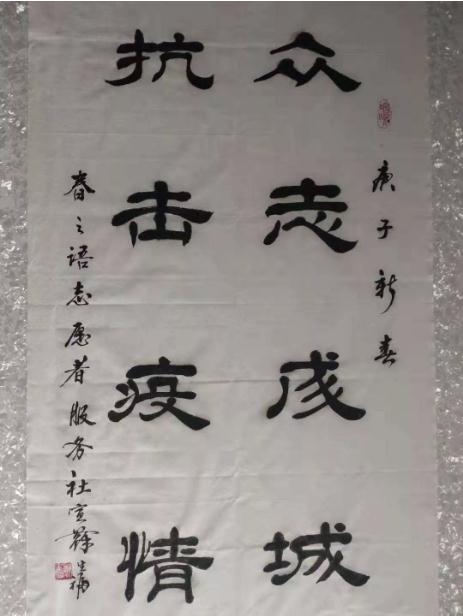 庚子新春
众志成城
抗击疫情
春之语志愿者服务社宣